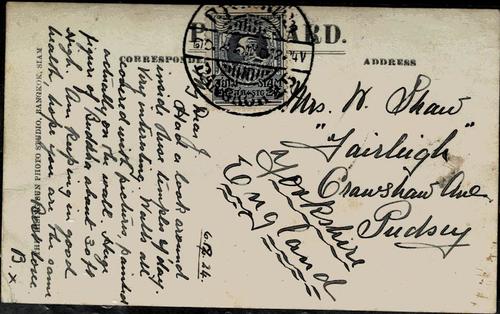 POST CARD.
CORRESPONDENCE
ADDRESS
STG. STG.
6.2.24.
My Dear J
Had a look around
inside these temples to day.
Very interesting. Walls all
covered with pictures painted
actually on the wall. Huge
figure of Buddha about 30 ft
high. Am keeping in good
health, hope you are the same
Best love
B. x
PHOTO STUDIO, BANGKOK, SIAM
Mrs. W. Shaw
"Fairleigh"
Crawshaw Ave.
Pudsey
Yorkshire
England